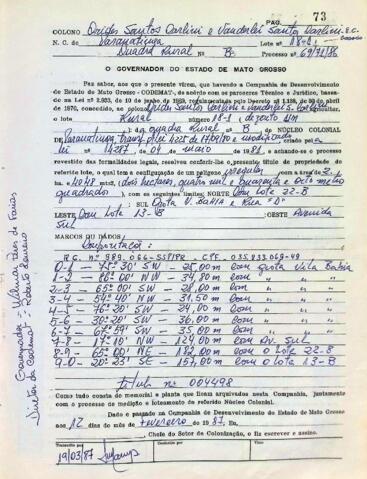 PAG. 73
COLONO Ovides Santos Carlini e Vanderlei Santos Carlini
N. C. de Paranatinga Lote nº 18-21
Quadra Rural Nº B- Processo nº 69/21/86
O GOVERNADOR DO ESTADO DE MATO GROSSO
Faz saber, aos que o presente virem, que havendo a Companhia de Desenvolvimento
do Estado de Mato Grosso - CODEMAT-, de acôrdo com os pareceres Técnico e Jurídico, basea-
da na Lei nº 2.933, de 10 de junho de 1969, regulamentada pelo Decreto nº 1.138, de 30 de abril
de 1970, concedido, ao
Rural nº 18-1
da quadra Rural nº B- do NÚCLEO COLONIAL
de Paranatinga, criado pela
lei nº de maio 1981 e achando-se o processo
revestido das formalidades legais, resolveu conferir-lhe o presente título de propriedade do
referido lote, o qual tem a configuração de um polígono irregular com a área de 2.
4048 mts (dois hectares, quatro mil e quarenta e oito metros
quadrados), com os seguintes limites: NORTE Com Lote 22-B
SUL Gorta V. BAHIA e Rua "D"
LESTE Com Lote 13-B OESTE Avenida
Sul
MARCOS OU DADOS
Confrontações:
R.G. nº 989.066-SSP/PR CPF. 035.933.069-49
0-1 - SW - 25,00m com gorta Vila Bahia
1-2 - NW - 34,80m com " "
2-3 - 65º00' SW - 28,00m com " "
3-4 - 54º40' NW - 31,50m com " "
4-5 - 76º20' SW - 24,00m com " "
5-6 - SW - 36,00m com " "
6-7 - NW - 35,00m com " "
7-8 - 17º10' NW - 124,00m com Av. Sul
8-9 - 65º00' NE - 182,00m com o Lote 22-B
9-0 - 20º23' SE - 157,00m com o Lote 13-B
título nº 004498
Como tudo consta do memorial e planta que ficam arquivados nesta Companhia, juntamente
com o processo de medição e loteamento do referido Núcleo Colonial.
Dado e passado na Companhia de Desenvolvimento do Estado de Mato Grosso
aos 12 dias do mês fevereiro de 1987. Eu,
Chefe do Setor de Colonização, o fiz escrever e assino.
Transcrito por
19/03/87
Governador - Wilmar Peres de Farias
Diretor da Codemat - Roberto Loureiro